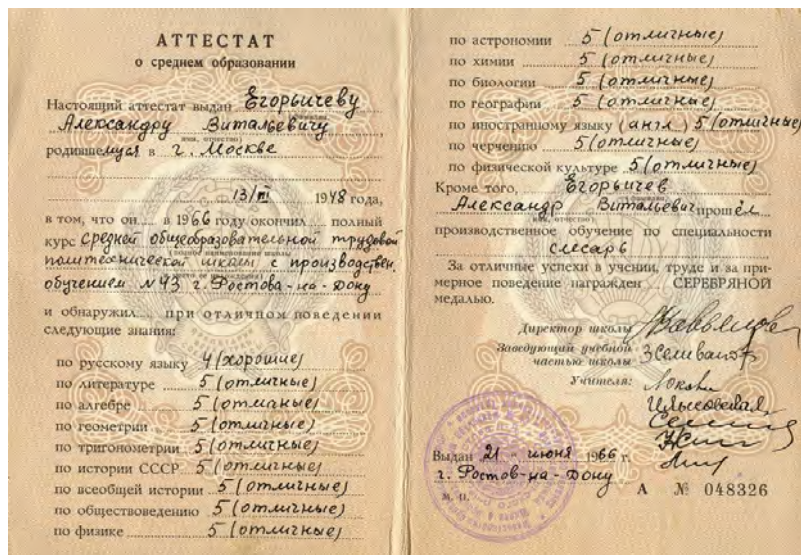 АТТЕСТАТ
о среднем образовании
Настоящий аттестат выдан Егорычеву
Александру Витальевичу
родившемуся в г. Москве
13/III 1948 года,
в том, что он в 1966 году окончил полный
курс средней общеобразовательной трудовой
политехнической школы с производствен.
обучением №43 г. Ростова-на-Дону
и обнаружил при отличном поведении
следующие знания:
по русскому языку 4 (хорошие)
по литературе 5 (отличные)
по алгебре 5 (отличные)
по геометрии 5 (отличные)
по тригонометрии 5 (отличные)
по истории СССР 5 (отличные)
по всеобщей истории 5 (отличные)
по обществоведению 5 (отличные)
по физике 5 (отличные)
по астрономии 5 (отличные)
по химии 5 (отличные)
по биологии 5 (отличные)
по географии 5 (отличные)
по иностранному языку (англ.) 5 (отличные)
по черчению 5 (отличные)
по физической культуре 5 (отличные)
Кроме того, Егорычев
Александр Витальевич прошёл
производственное обучение по специальности
слесарь
За отличные успехи в учении, труде и при-
мерное поведение награжден СЕРЕБРЯНОЙ
медалью.
Директор школы
Заведующий учебной
частью школы
Учителя:
Выдан 21 июня 1966 г.
г. Ростов-на-Дону
М. П.
А № 048326